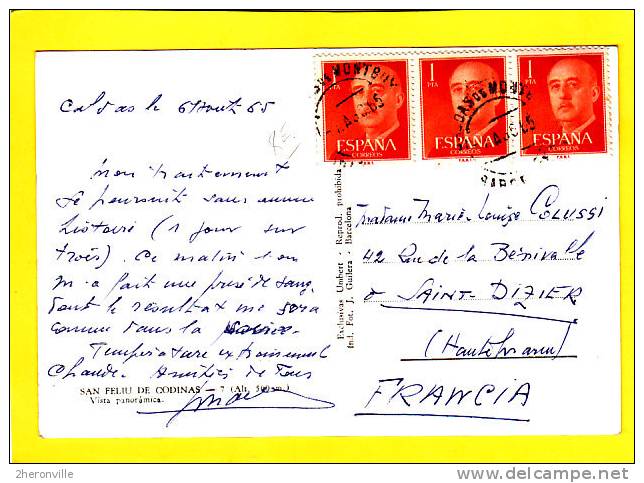 Caldas le 6 Août 65
Mon traitement
se poursuit sans aucune
histoire (1 jour sur
trois). Ce matin l'on
m'a fait une prise de sang
dont le résultat me sera
connu dans la soirée.
Température extrêmement
Chaude. Amitiés de Tous
SAN FELIU DE CODINAS - 7 (Alt. 500 m.)
Vista panorámica.
Exclusivas Umbert - Reprod. prohibida
Ind. Fot. J. Guilera - Barcelona
1 PTA
ESPAÑA
CORREOS
1 PTA
ESPAÑA
CORREOS
1 PTA
ESPAÑA
CORREOS
Madame Marie-Louise COLUSSI
42 Rue de la
SAINT-DIZIER
(Haute Marne)
FRANCIA
2heronville
delcampe.net